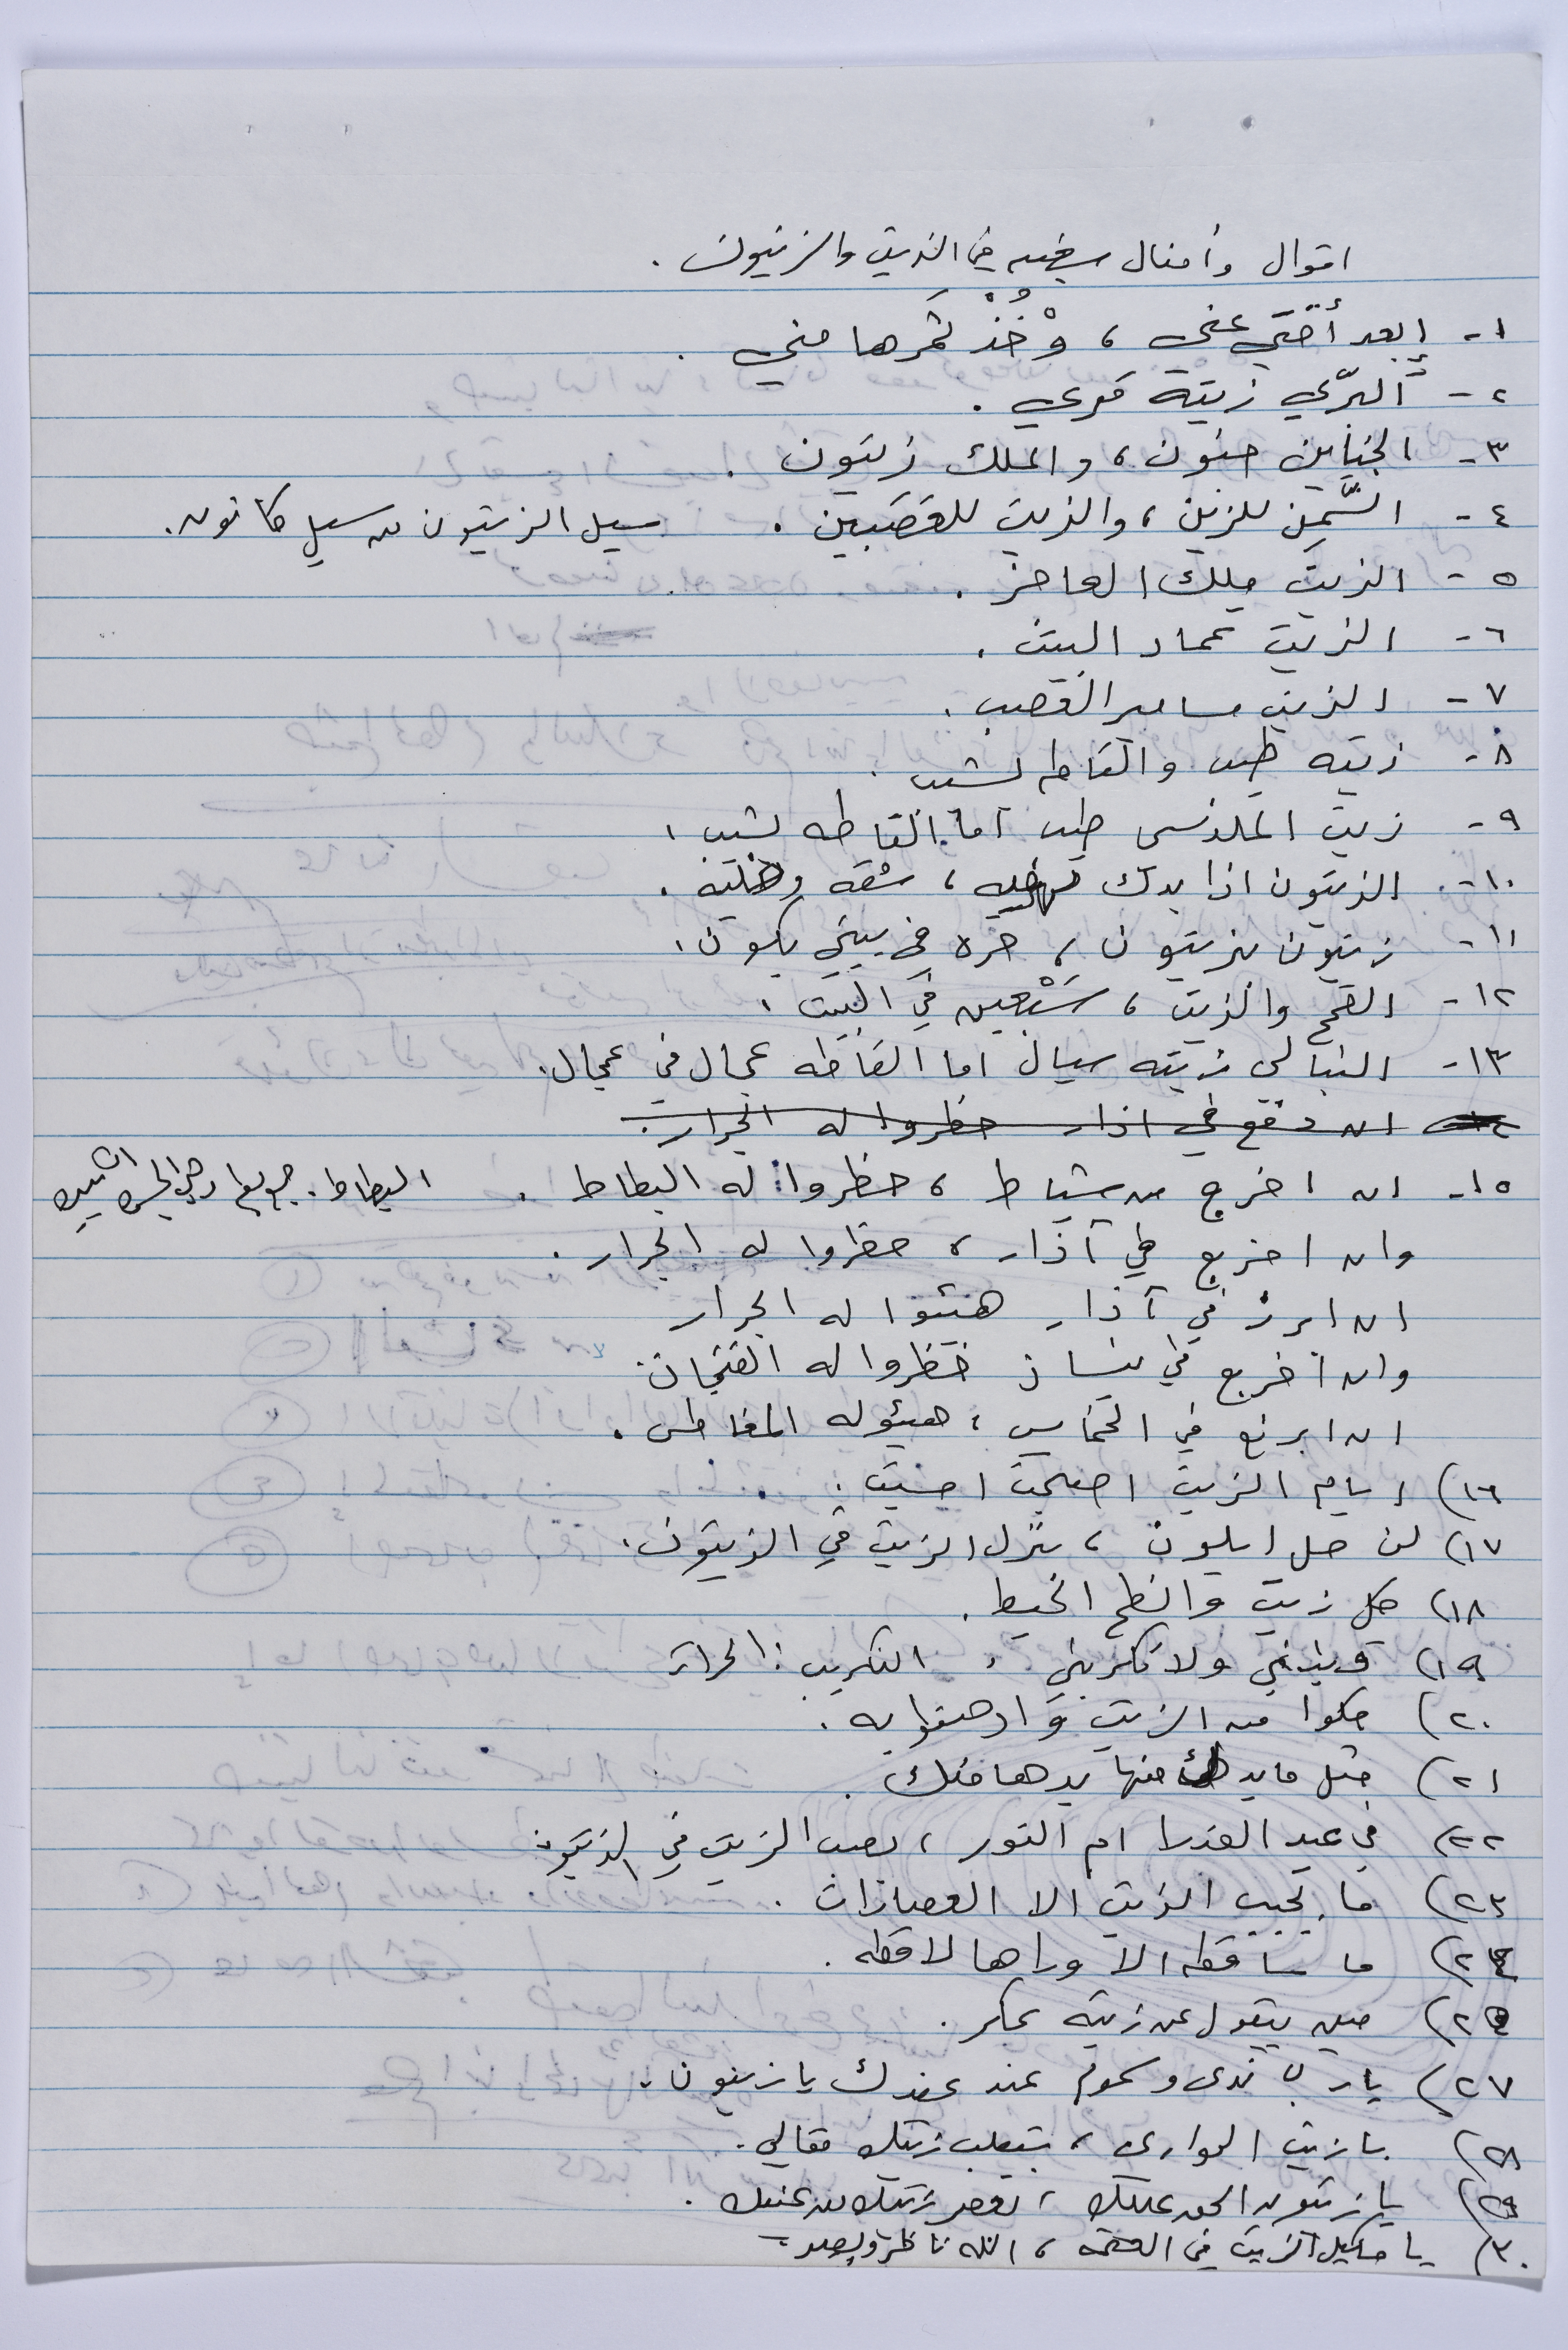 اقوال وأمثال شعبيه في الزيت والزيتون .
١- إبعد أُختي عني ، وْخُذْ ثمَرها مني .
٢- البرّي زيته قوي .
٣- الجناين جنون ، والملك زيتون .
٤- السَّمِن للزين ، والزيت للعَصَبين . سيل الزيتون من سيل كانون .
٥- الزيت ملك العاجز .
٦- الزيت عماد البيت .
٧- الزيت مسامير العصب .
٨- زيته طيب والقاطه بشيب .
٩- زيت المليسي طيب أما القاطه بشيب .
١٠- الزيتون اذا بدك ، شقه وخليه .
١١- زيتون بزيتون ، خره في بيتي يكون .
١٢- القمح والزيت ، سَبْعين في البيت .
١٣- النبالي زيته سيال اما القاطه عجال في عجال .
١٤ ان دفع في اذار حظروا له الجرار .
١٥- ان اخرج من شباط ، حظروا له البطاط . البطاط :
وان اخرج في آذار ، حظروا له الجرار .
ان ابرز في آذار هيئوا له الجرار
وان أخرج في نيسان حظروا له الفنجان .
ان ابرز في الخماسين ، هيئوله المغاطس .
١٦) ايام الزيت اصبحت امسيت .
١٧) لن حل ايلون ، بنزل الزيت في الزيتون .
١٨) كل زيت وانطح الحيط .
١٩) قربني ولا تكربني . التكريب : الحراث
٢٠) كلوا من الزيت وادهنوا به .
٢١) مثل ما بدك منها بدها منك .
٢٢) في عيد العذرا ام النور ، بصب الزيت في الزيتون
٢٣) ما بجيب الزيت الا العصارات .
٢٤) ما ساقطه الا وراها لاقطه .
٢٥) مين بيقول عن زيته عكر .
٢٧) يا رب ندى وسموم عند عقدك يا زيتون .
٢٨) يا زيت الحواري ، بتعلب زيتك مقالي .
٢٩) يا زيتون الحق عليك ، نعصر زيتك من عنيك .
٣٠) يا مكيل الزيت في العتمه ، الله ناظر وبصير .